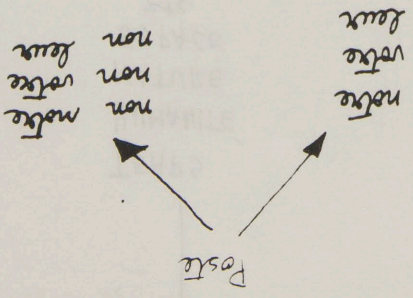 Poste
notre
votre
leur
non notre
non votre
non leur